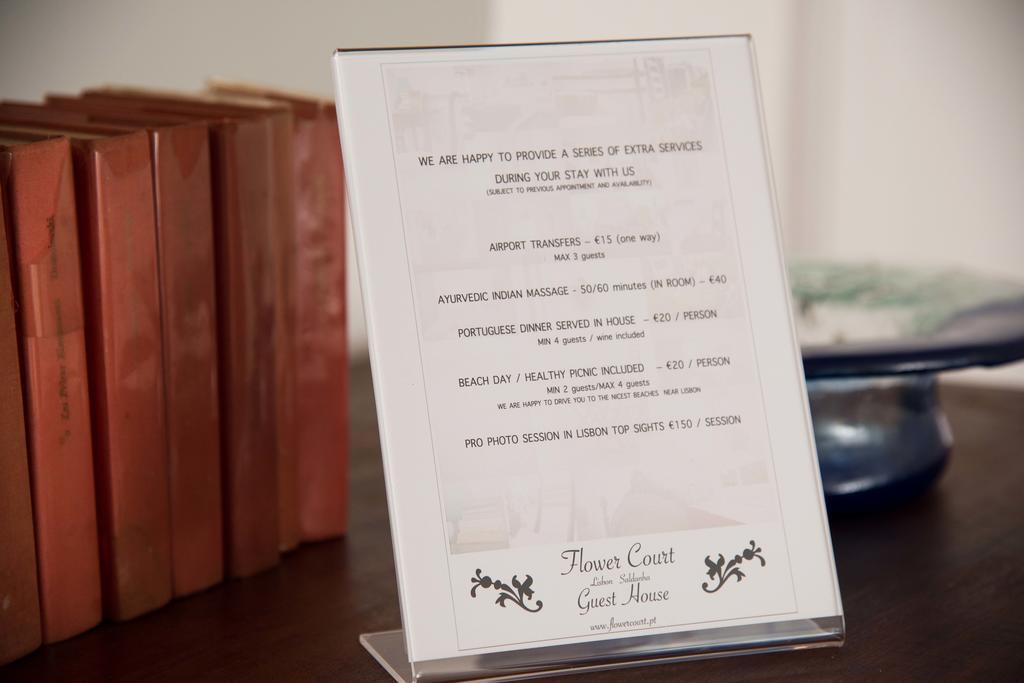 WE ARE HAPPY TO PROVIDE A SERIES OF EXTRA SERVICES
DURING YOUR STAY WITH US
(SUBJECT TO PREVIOUS APPOINTMENT AND AVAILABILITY)
AIRPORT TRANSFERS – €15 (one way)
MAX 3 guests
AYURVEDIC INDIAN MASSAGE - 50/60 minutes (IN ROOM) – €40
PORTUGUESE DINNER SERVED IN HOUSE – €20 / PERSON
MIN 4 guests / wine included
BEACH DAY / HEALTHY PICNIC INCLUDED – €20 / PERSON
MIN 2 guests/MAX 4 guests
WE ARE HAPPY TO DRIVE YOU TO THE NICEST BEACHES NEAR LISBON
PRO PHOTO SESSION IN LISBON TOP SIGHTS €150 / SESSION
Flower Court
Lisbon Saldanha
Guest House
www.flowercourt.pt